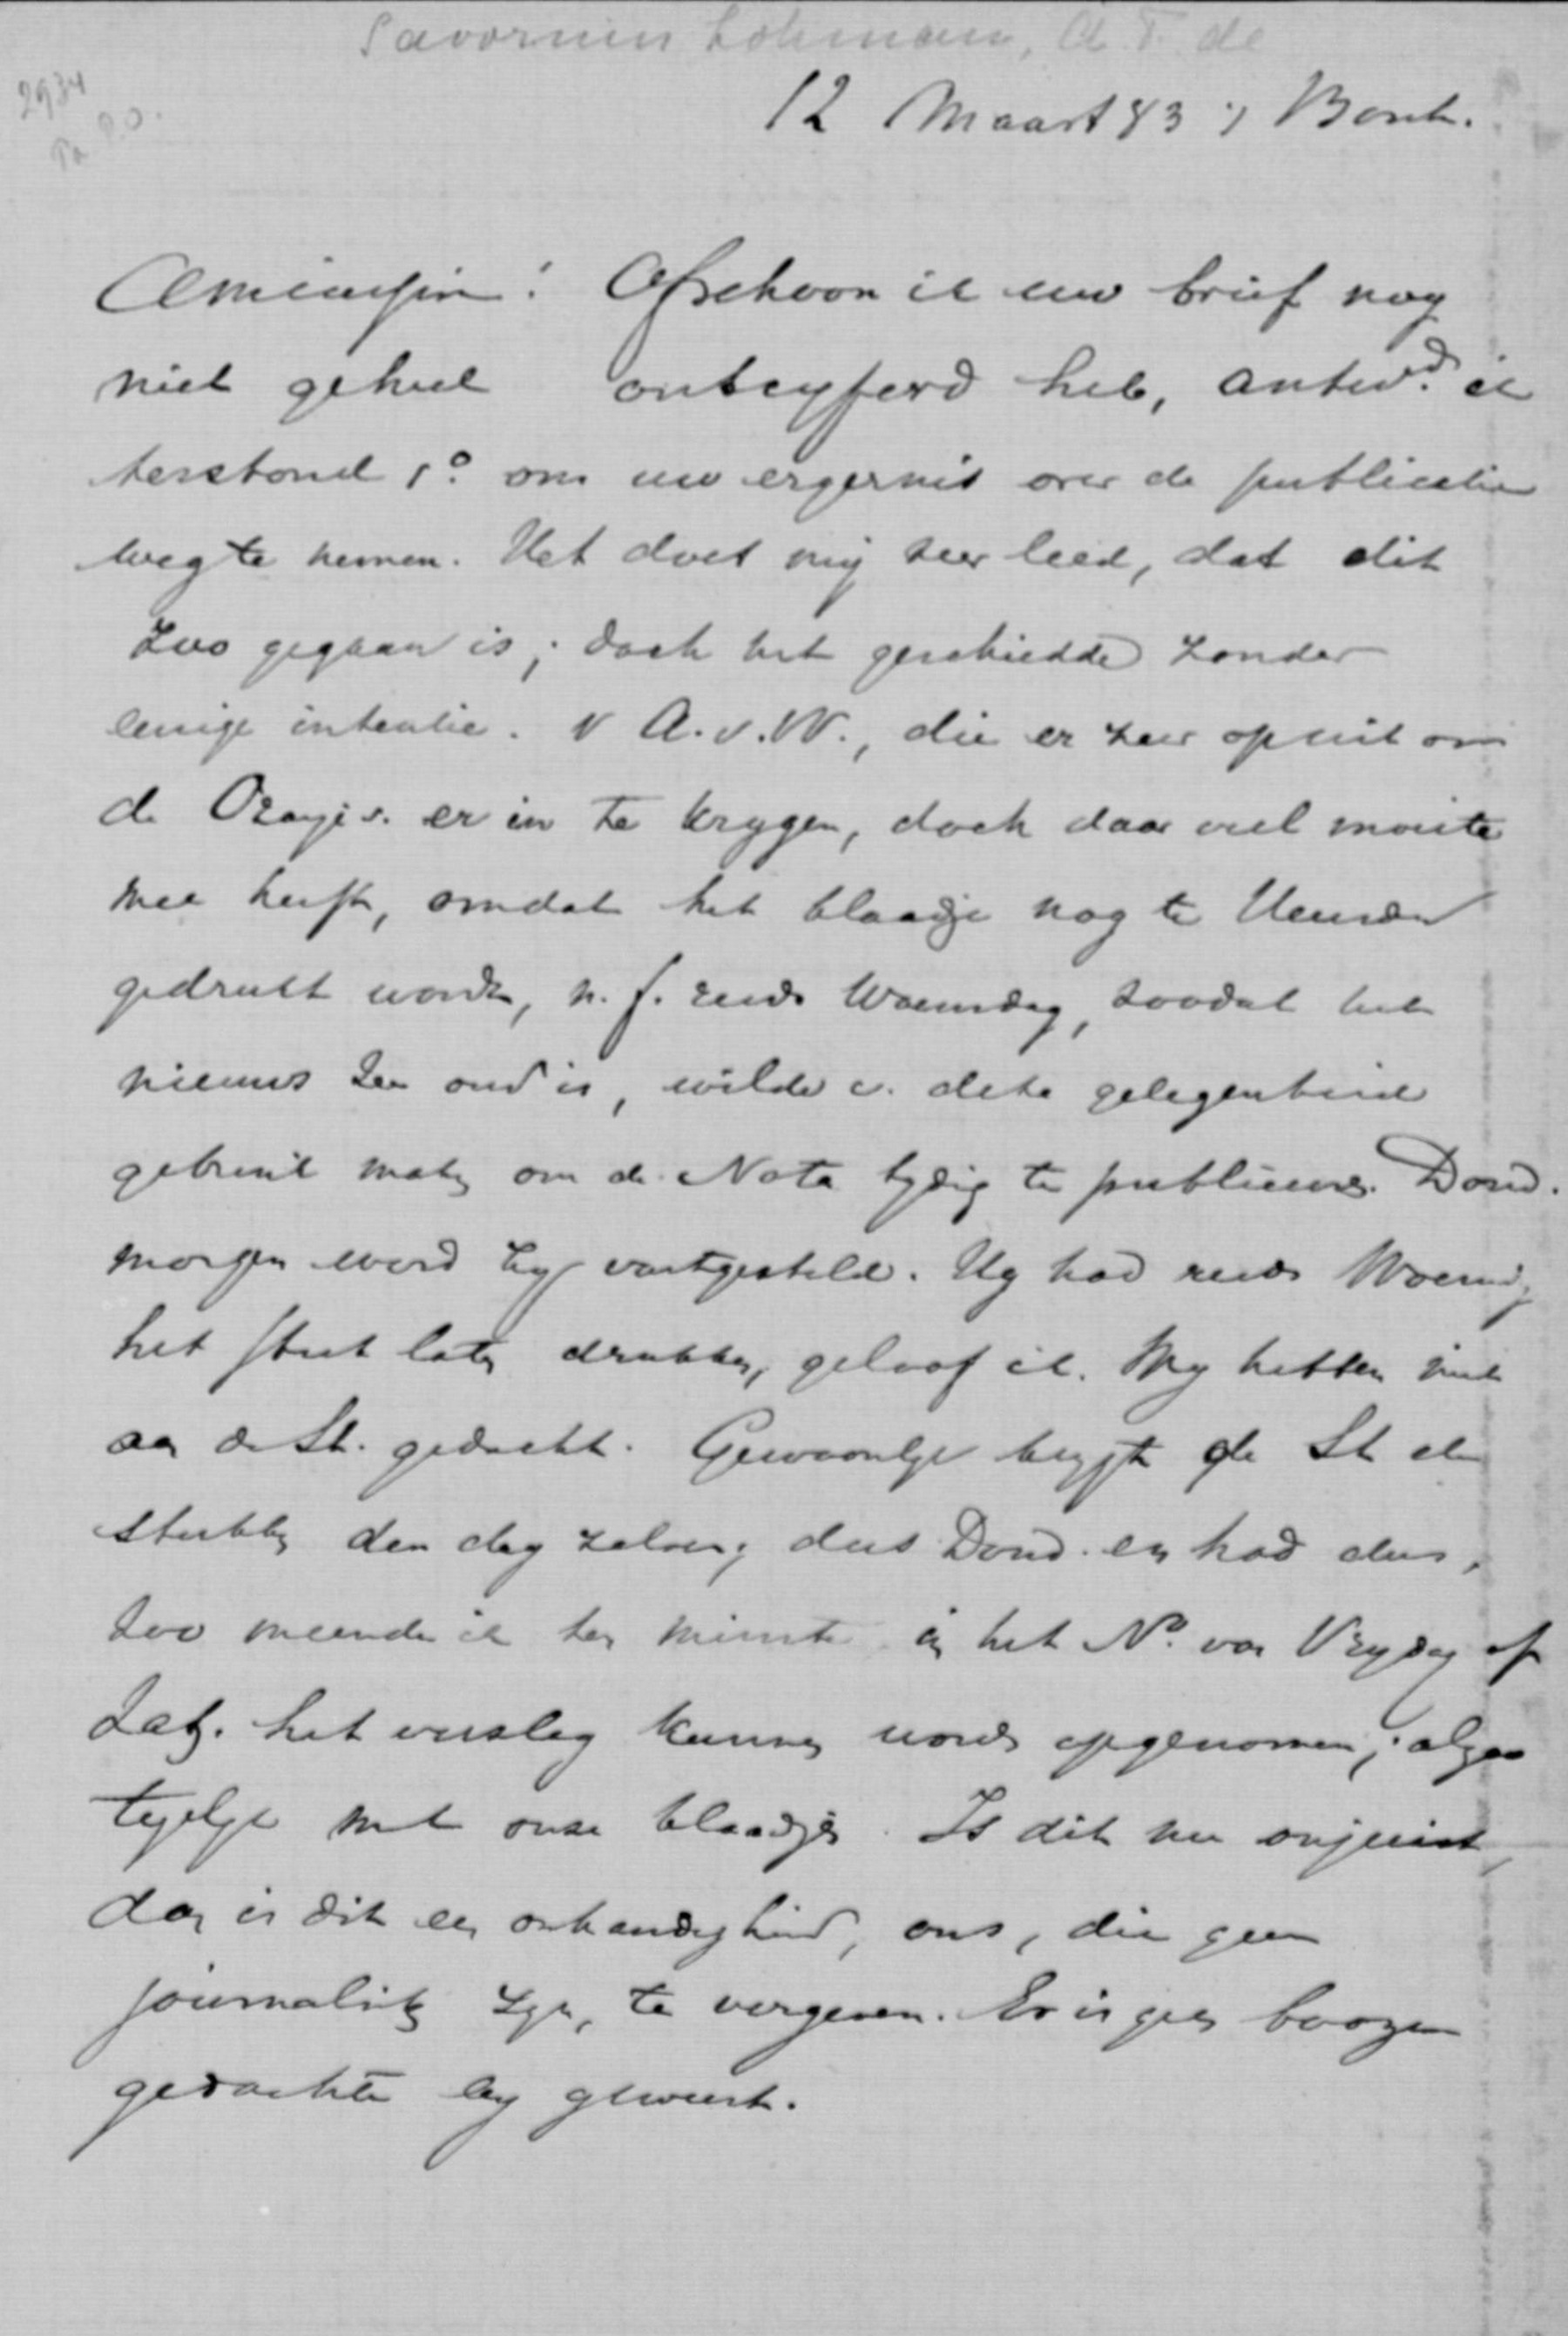 Savornin Lohman, A. F. de
2934
Pa P.O.
12 Maart 83 's Bosch.
Amicissime! Ofschoon ik uw brief nog
niet geheel ontcyferd heb, antwd. ik
terstond 1o. om uw ergernis over de publicatie
weg te nemen. Het doet mij zeer leed, dat dit
zoo gegaan is; doch het geschiedde zonder
eenige intentie. v A. v. W., die er zeer op uit om
de er in te krygen, doch daar veel moeite
mee heeft, omdat het blaadje nog te Heusden
gedrukt wordt, n. f. reeds Woensdag, zoodat het
nieuws zeer oud is, wilde v. deze gelegenheid
gebruik maken om de Nota tydig te publiceeren. Dond.
morgen werd zy vastgesteld. Hy had reeds Woensdg
het stuk laten drukken, geloof ik. Wy hebben niet
aan de St. gedacht. Gewoonlyk krygt de St de
stukken den dag zelven; dus Dond. en had dus,
zoo meende ik ten minste in het No. van Vrydag of
Zat. het verslag kunnen worden opgenomen; alzoo
tegelyk met onze blaadjes. Is dit nu onjuist,
dan is dit een onhandigheid, ons, die geen
journalisten zyn, te vergeven. Er is geen booze
gedachte by geweest.